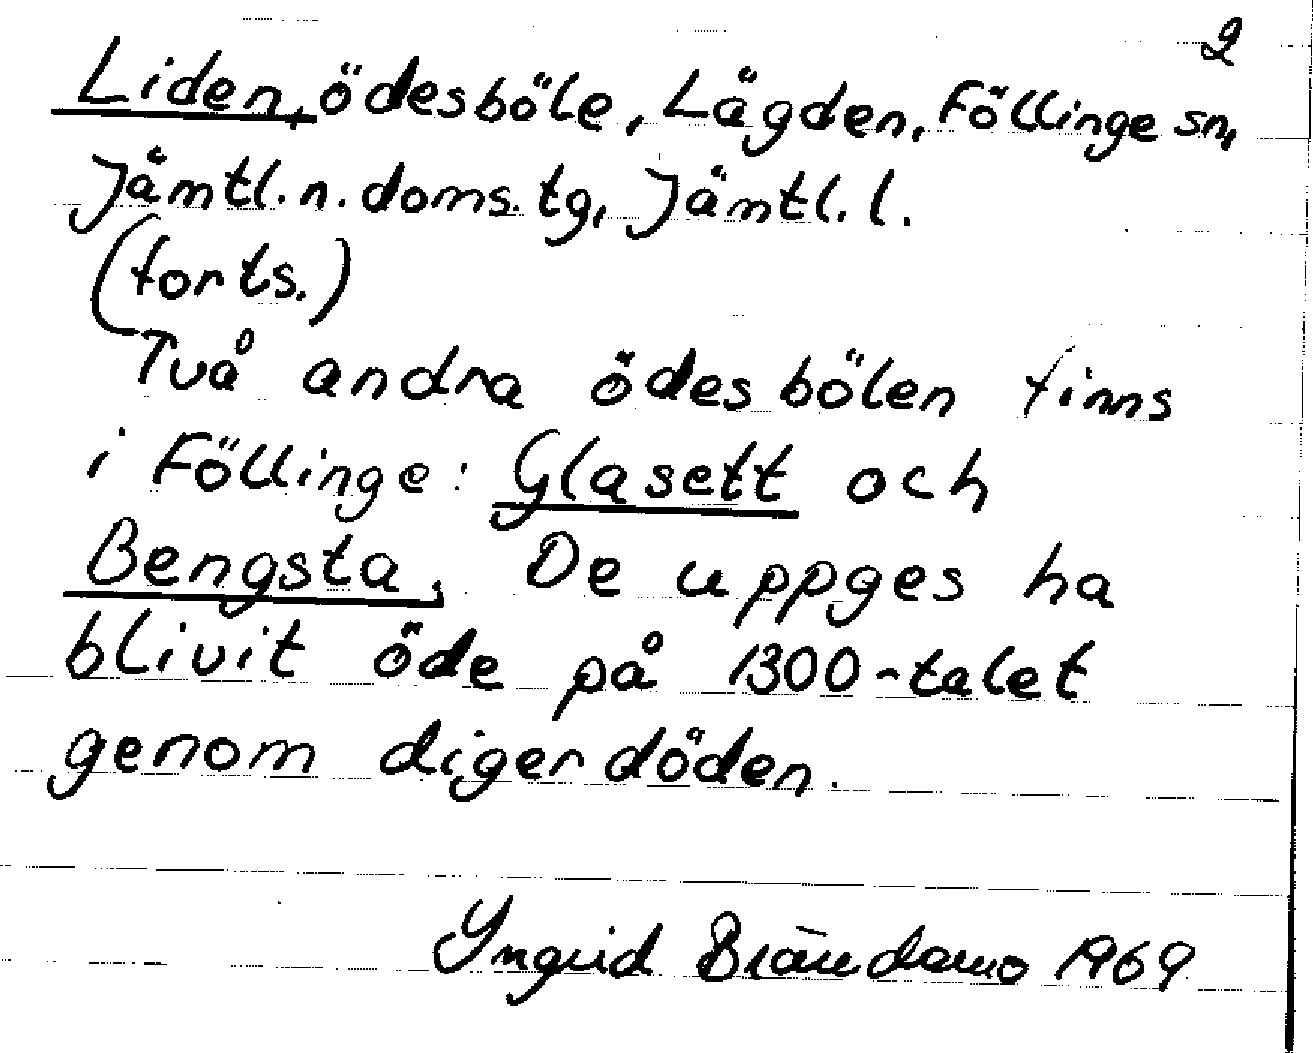 2
Liden, ödesböle, Lägden, Föllinge sn,
Jämtl. n. doms. tg, Jämtl. l.
(forts.)
Två andra ödesbölen finns
i Föllinge: Glasett och
Bengsta. De uppges ha
blivit öde på 1300-talet
genom digerdöden.
Yngrid Brändamo 1969